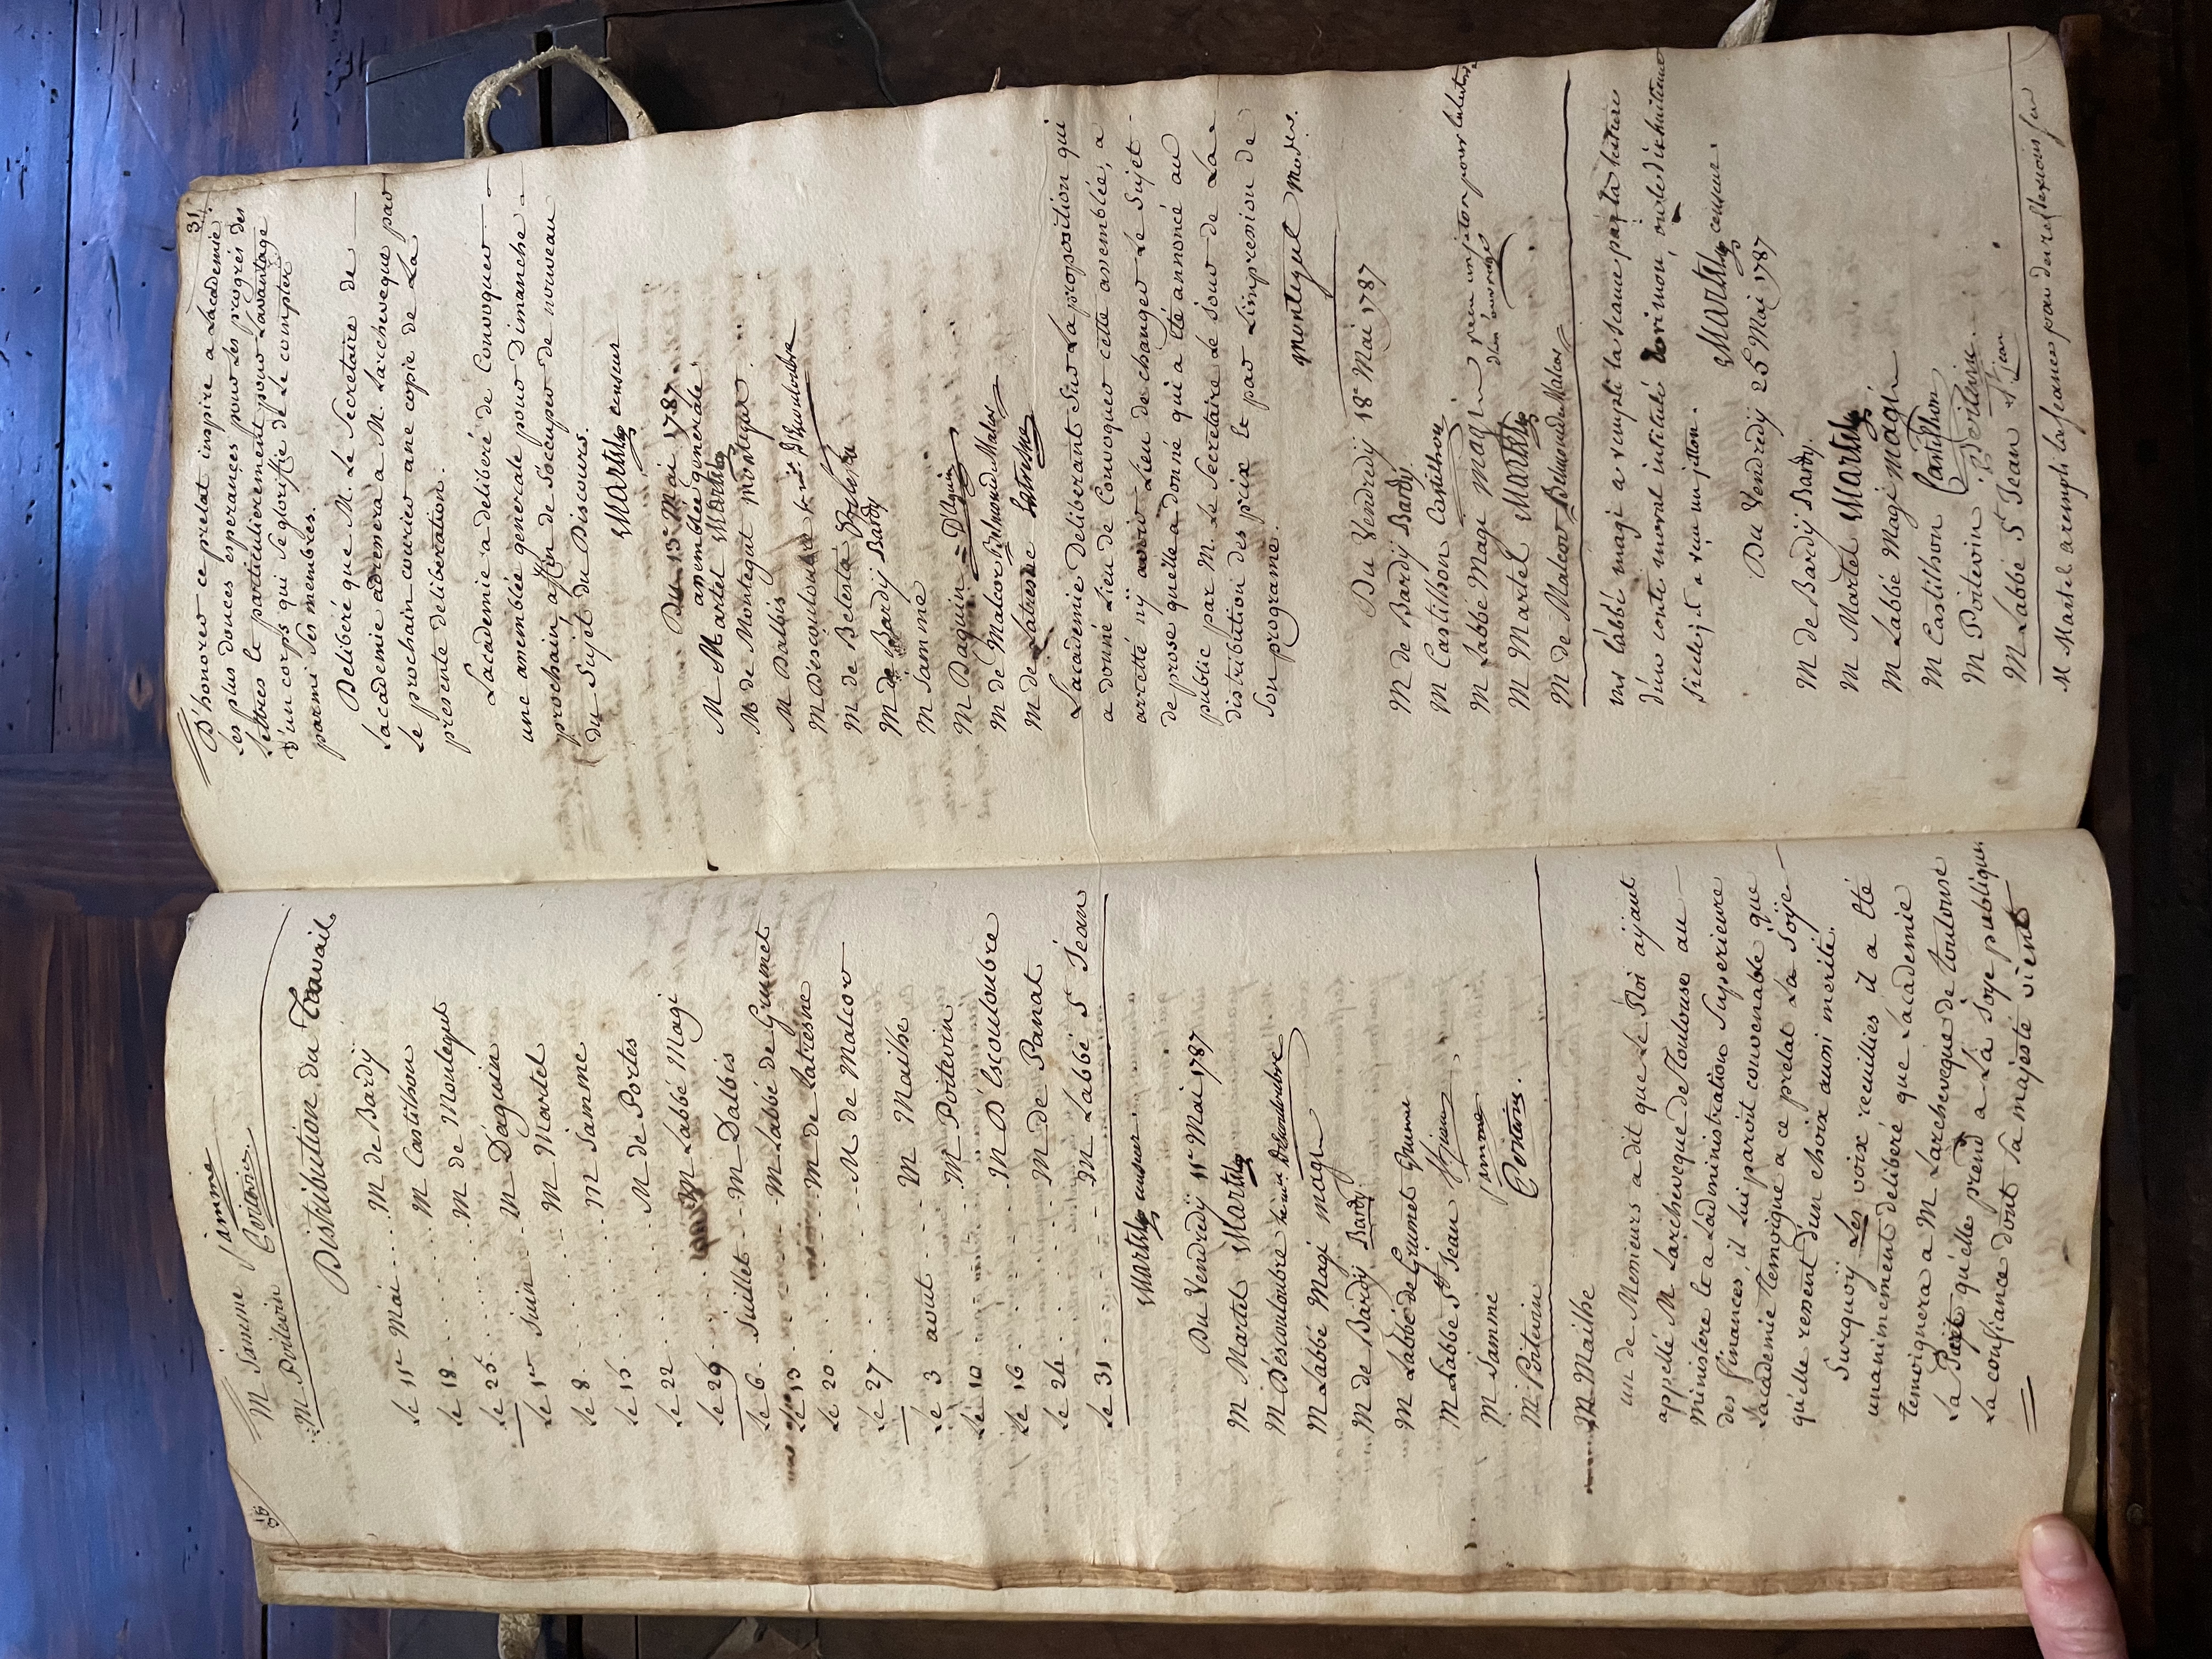 M Jamme Jamme
M Poitevin Poitevin
Distribution du Travail
Le 11e Mai .... M de Bardÿ
Le 18 ........ M Castilhon
Le 25 ........ M de Montegut
Le 1er Juin ... M Daguin
Le 8 ........ M Martel
Le 15 ........ M Jamme
Le 22 ........ M de Portes
Le 29 ........ M Labbé Magi
Le 6 Juillet .. M Dalbis
Le 13 ........ M Labbé de Grumet
Le 20 ........ M de Latresne
Le 27 ........ M de Malcor
Le 3 aout .... M Mailhe
Le 10 ........ M Poitevin
Le 16 ........ M D'Escouloubre
Le 24 ........ M de Panat
Le 31 ........ M Labbé St Jean
Martel censeur.
Du Vendredÿ 11e Mai 1787
M Martel Martel
M Déscouloubre le mis Descouloubre
M Labbé Magi magi
M de Bardÿ Bardy
M Labbé de Grumet
M Labbe St Jean St jean
M Jamme jamme
M. Poitevin Poitevin.
M Mailhe
un de Messieurs a dit que Le Roi aÿant
appellé M Larcheveque de Toulouse au
ministere et a Ladministration Superieure
des finances, il Lui paroit convenable que
Lacademie Temoigne a ce prelat La Joÿe
qu'elle ressent d'un choix aussi merité.
Surquoÿ Les voix recueillies il a été
unanimement deliberé que Lacademie
temoignera a M Larcheveque de toulouse
La Part qu'elle prend a La Joye publique
La confiance dont sa majesté vient
31.
D'honorer ce prelat inspire a Lacademie
Les plus douces esperances pour Les progres des
Lettres et particulierement pour Lavantage
d'un corps qui se glorifie de Le compter
parmi ses membres.
Deliberé que M. Le Secretaire de
Lacademie adressera a M. Larcheveque par
Le prochain courier une copie de La
presente deliberation.
Lacademie a deliberé de Convoquer
une assemblée generale pour Dimanche
prochain affin de s'occuper de nouveau
du Sujet du Discours.
Martel censeur
Du 13e Mai 1787
assemblée generale.
M Martel Martel
M de Montegut montegut
M Dalbis
M D'Escouloubre le mis d'Escouloubre
M de Belesta Belesta
M de Bardÿ Bardy
M Jamme
M Daguin D'Aguin
M de Malcor Belmond de Malcor
M de Latresne Latresne
Lacademie Deliberant Sur La proposition qui
a donné Lieu de Convoquer cette assemblée, a
arretté n'ÿ avoir Lieu de changer Le Sujet
de prose qu'elle a donné qui a été annoncé au
public par M. Le Secretaire Le jour de La
distribution des prix et par L'impression de
Son programe.
montegut modr.
Du Vendredÿ 18e Mai 1787
M de Bardÿ Bardy
M Castilhon Castilhon
M Labbé Magi magi recu un jeton pour lecture
d'un ouvrage
M Martel Martel
M de Malcor Belmond de Malcor
mr l'abbé magi a rempli la seance par la lecture
d'un conte moral intitulé dorimon, ou le dixhuitieme
siecle; il a reçu un jetton.
Martel censeur.
Du Vendredÿ 25 Mai 1787
M de Bardÿ Bardy
M Martel Martel
M Labbé Magi magi
M Castilhon Castilhon
M Poitevin Poitevin.
M Labbé St Jean St Jean
M Martel a rempli la seance par des reflexions sur